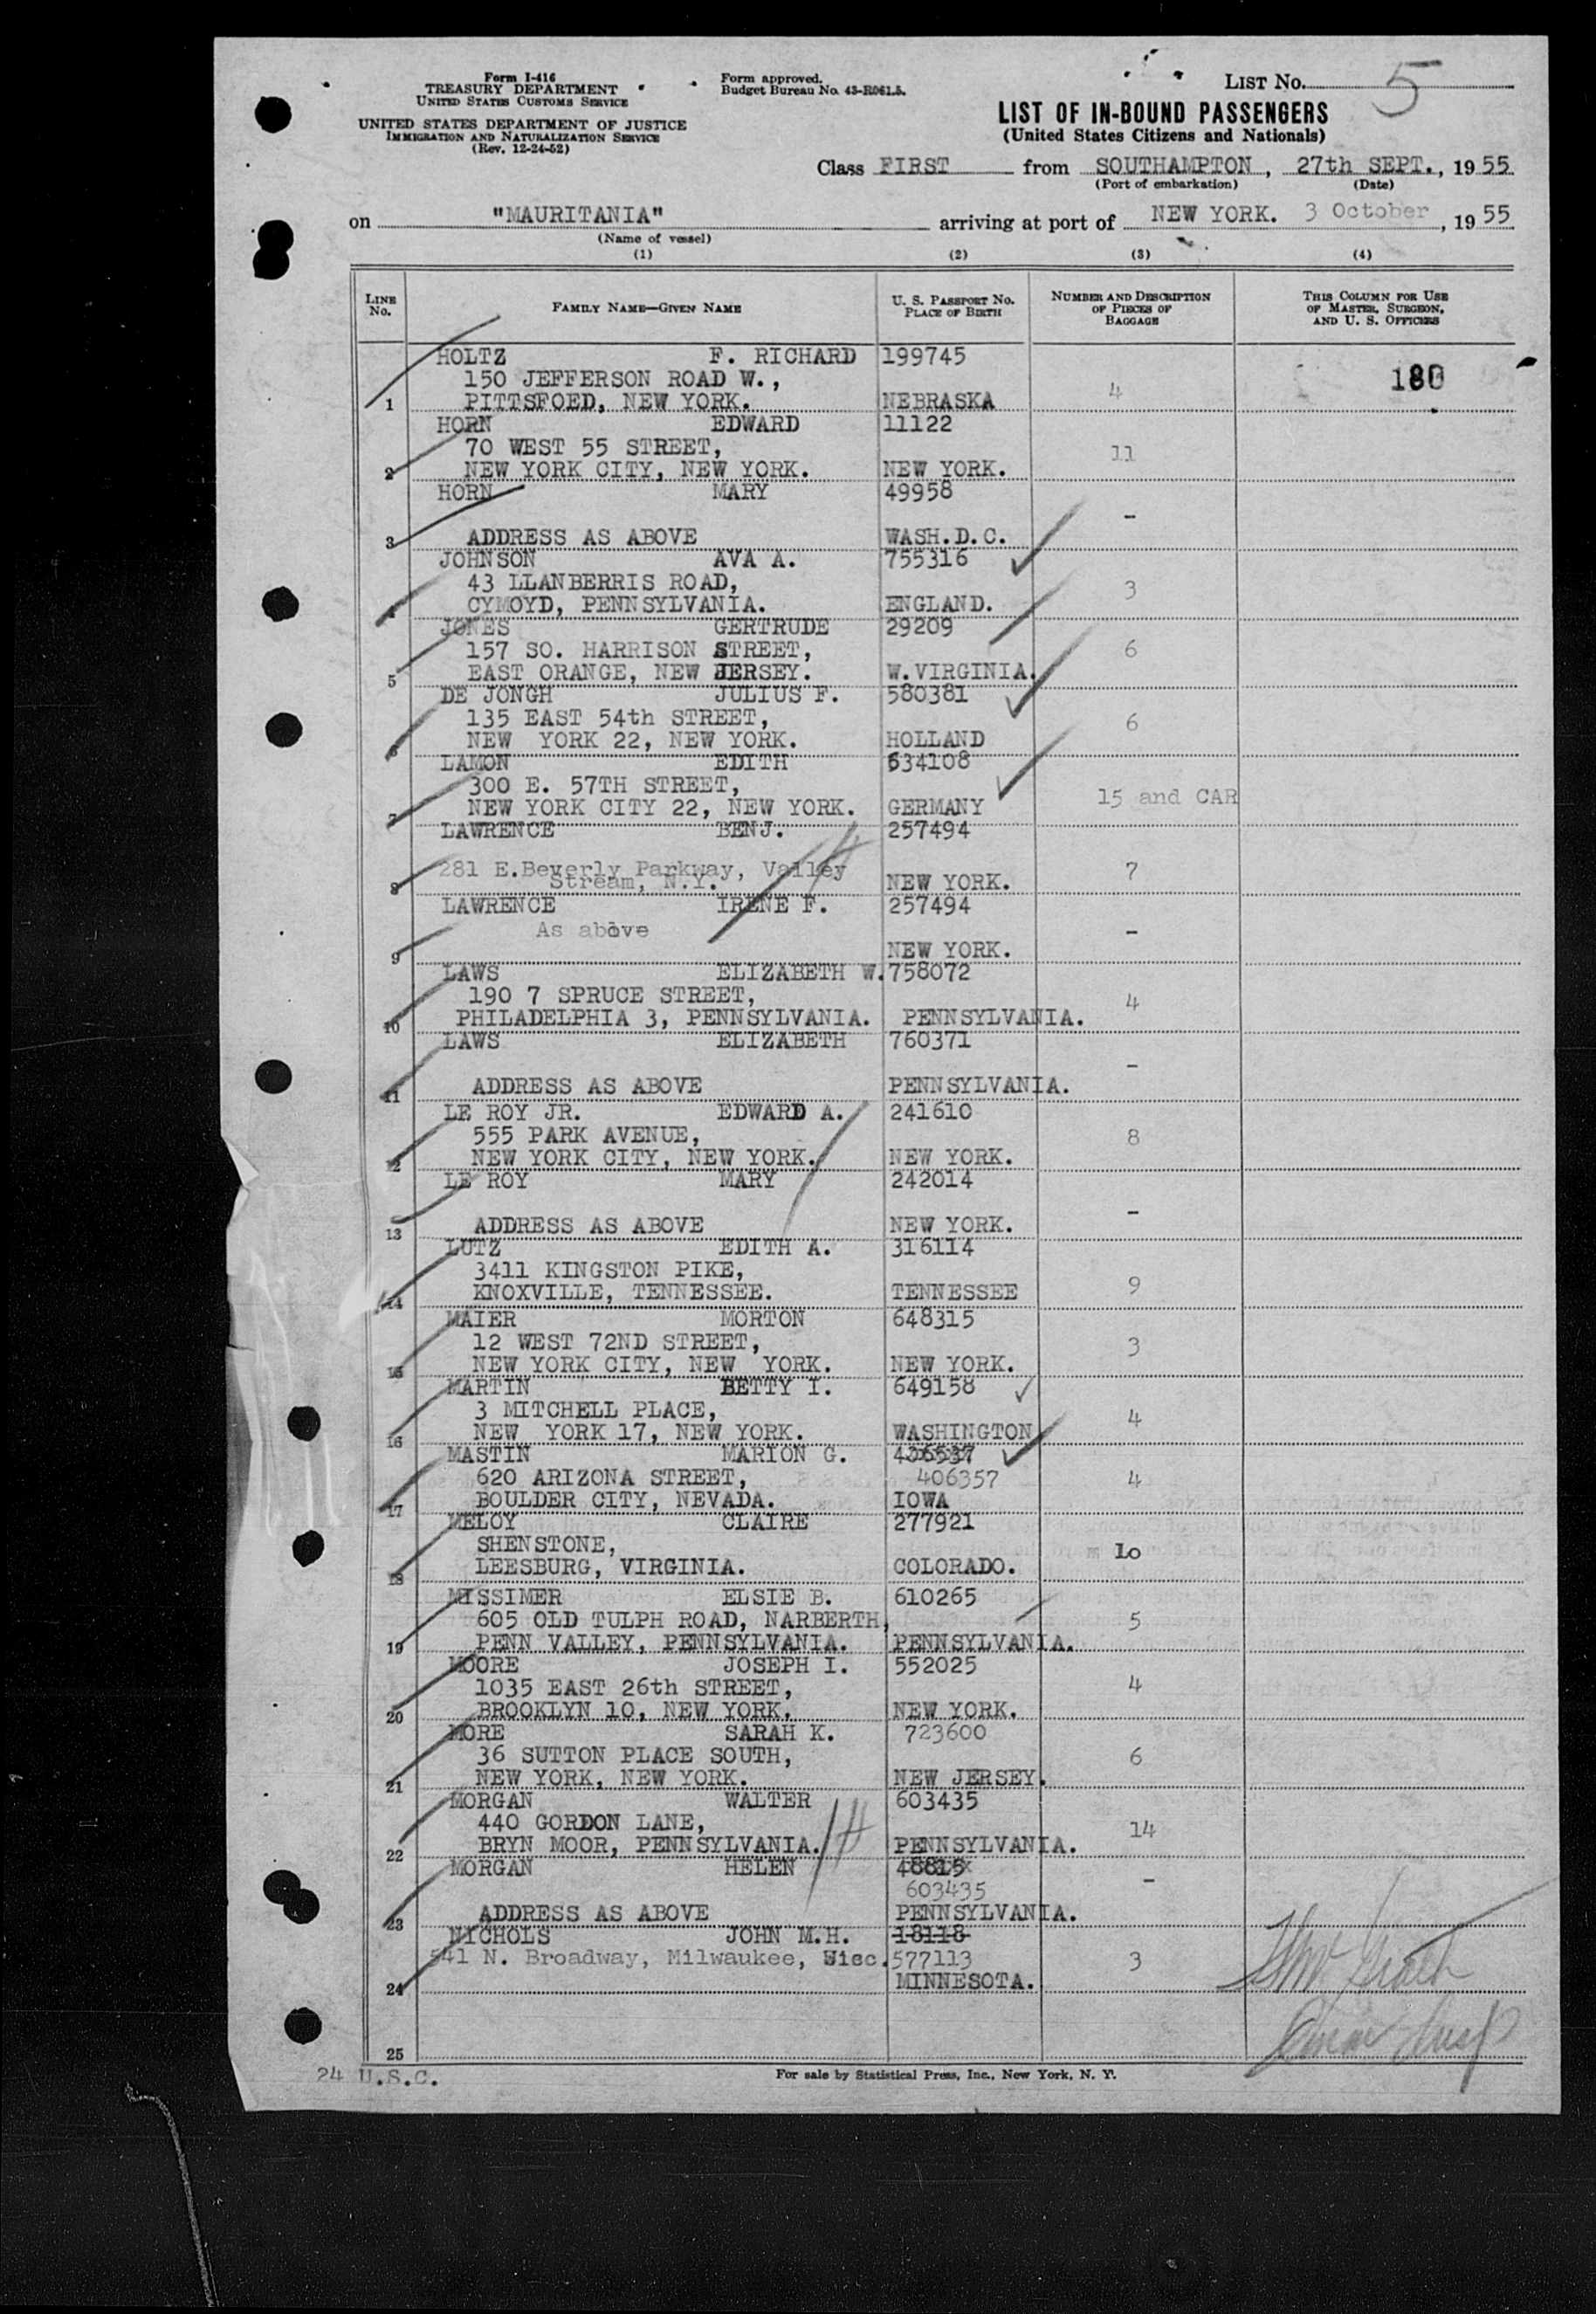 Form I-416
TREASURY DEPARTMENT
UNITED STATES CUSTOMS SERVICE
UNITED STATES DEPARTMENT OF JUSTICE
IMMIGRATION AND NATURALIZATION SERVICE
(Rev. 12-24-52)
Form approved.
Budget Bureau No. 43-R061.5.
LIST No. 5
LIST OF IN-BOUND PASSENGERS
(United States Citizens and Nationals)
Class FIRST from SOUTHAMPTON, 27th SEPT., 1955
(Port of embarkation) (Date)
on "MAURITANIA" arriving at port of NEW YORK. 3 October, 1955
(Name of vessel)
(1) (2) (3) (4)
LINE No. FAMILY NAME—GIVEN NAME U. S. PASSPORT No. PLACE OF BIRTH NUMBER AND DESCRIPTION OF PIECES OF BAGGAGE THIS COLUMN FOR USE OF MASTER, SURGEON, AND U. S. OFFICERS
HOLTZ F. RICHARD 199745
150 JEFFERSON ROAD W., 4 180
1 PITTSFOED, NEW YORK. NEBRASKA
HORN EDWARD 11122
70 WEST 55 STREET, 11
2 NEW YORK CITY, NEW YORK. NEW YORK.
HORN MARY 49958
-
3 ADDRESS AS ABOVE WASH.D.C.
JOHNSON AVA A. 755316
43 LLANBERRIS ROAD, 3
4 CYMOYD, PENNSYLVANIA. ENGLAND.
JONES GERTRUDE 29209
157 SO. HARRISON STREET, 6
5 EAST ORANGE, NEW JERSEY. W.VIRGINIA.
DE JONGH JULIUS F. 580381
135 EAST 54th STREET, 6
6 NEW YORK 22, NEW YORK. HOLLAND
LAMON EDITH 634108
300 E. 57TH STREET, 15 and CAR
7 NEW YORK CITY 22, NEW YORK. GERMANY
LAWRENCE BENJ. 257494
281 E.Beverly Parkway, Valley 7
8 Stream, N.Y. NEW YORK.
LAWRENCE IRENE F. 257494
As above -
9 NEW YORK.
LAWS ELIZABETH W. 758072
190 7 SPRUCE STREET, 4
10 PHILADELPHIA 3, PENNSYLVANIA. PENNSYLVANIA.
LAWS ELIZABETH 760371
-
11 ADDRESS AS ABOVE PENNSYLVANIA.
LE ROY JR. EDWARD A. 241610
555 PARK AVENUE, 8
12 NEW YORK CITY, NEW YORK. NEW YORK.
LE ROY MARY 242014
-
13 ADDRESS AS ABOVE NEW YORK.
LUTZ EDITH A. 316114
3411 KINGSTON PIKE, 9
14 KNOXVILLE, TENNESSEE. TENNESSEE
MAIER MORTON 648315
12 WEST 72ND STREET, 3
15 NEW YORK CITY, NEW YORK. NEW YORK.
MARTIN BETTY I. 649158
3 MITCHELL PLACE, 4
16 NEW YORK 17, NEW YORK. WASHINGTON
MASTIN MARION G. 406537
620 ARIZONA STREET, 406357 4
17 BOULDER CITY, NEVADA. IOWA
MELOY CLAIRE 277921
SHENSTONE, 10
18 LEESBURG, VIRGINIA. COLORADO.
MISSIMER ELSIE B. 610265
605 OLD TULPH ROAD, NARBERTH, 5
19 PENN VALLEY, PENNSYLVANIA. PENNSYLVANIA.
MOORE JOSEPH I. 552025
1035 EAST 26th STREET, 4
20 BROOKLYN 10, NEW YORK. NEW YORK.
MORE SARAH K. 723600
36 SUTTON PLACE SOUTH, 6
21 NEW YORK, NEW YORK. NEW JERSEY.
MORGAN WALTER 603435
440 GORDON LANE, 14
22 BRYN MOOR, PENNSYLVANIA. PENNSYLVANIA.
MORGAN HELEN 48815
603435 -
23 ADDRESS AS ABOVE PENNSYLVANIA.
NICHOLS JOHN M.H. 18118
541 N. Broadway, Milwaukee, Wisc. 577113 3
24 MINNESOTA.
25
24 U.S.C.
For sale by Statistical Press, Inc., New York, N. Y.